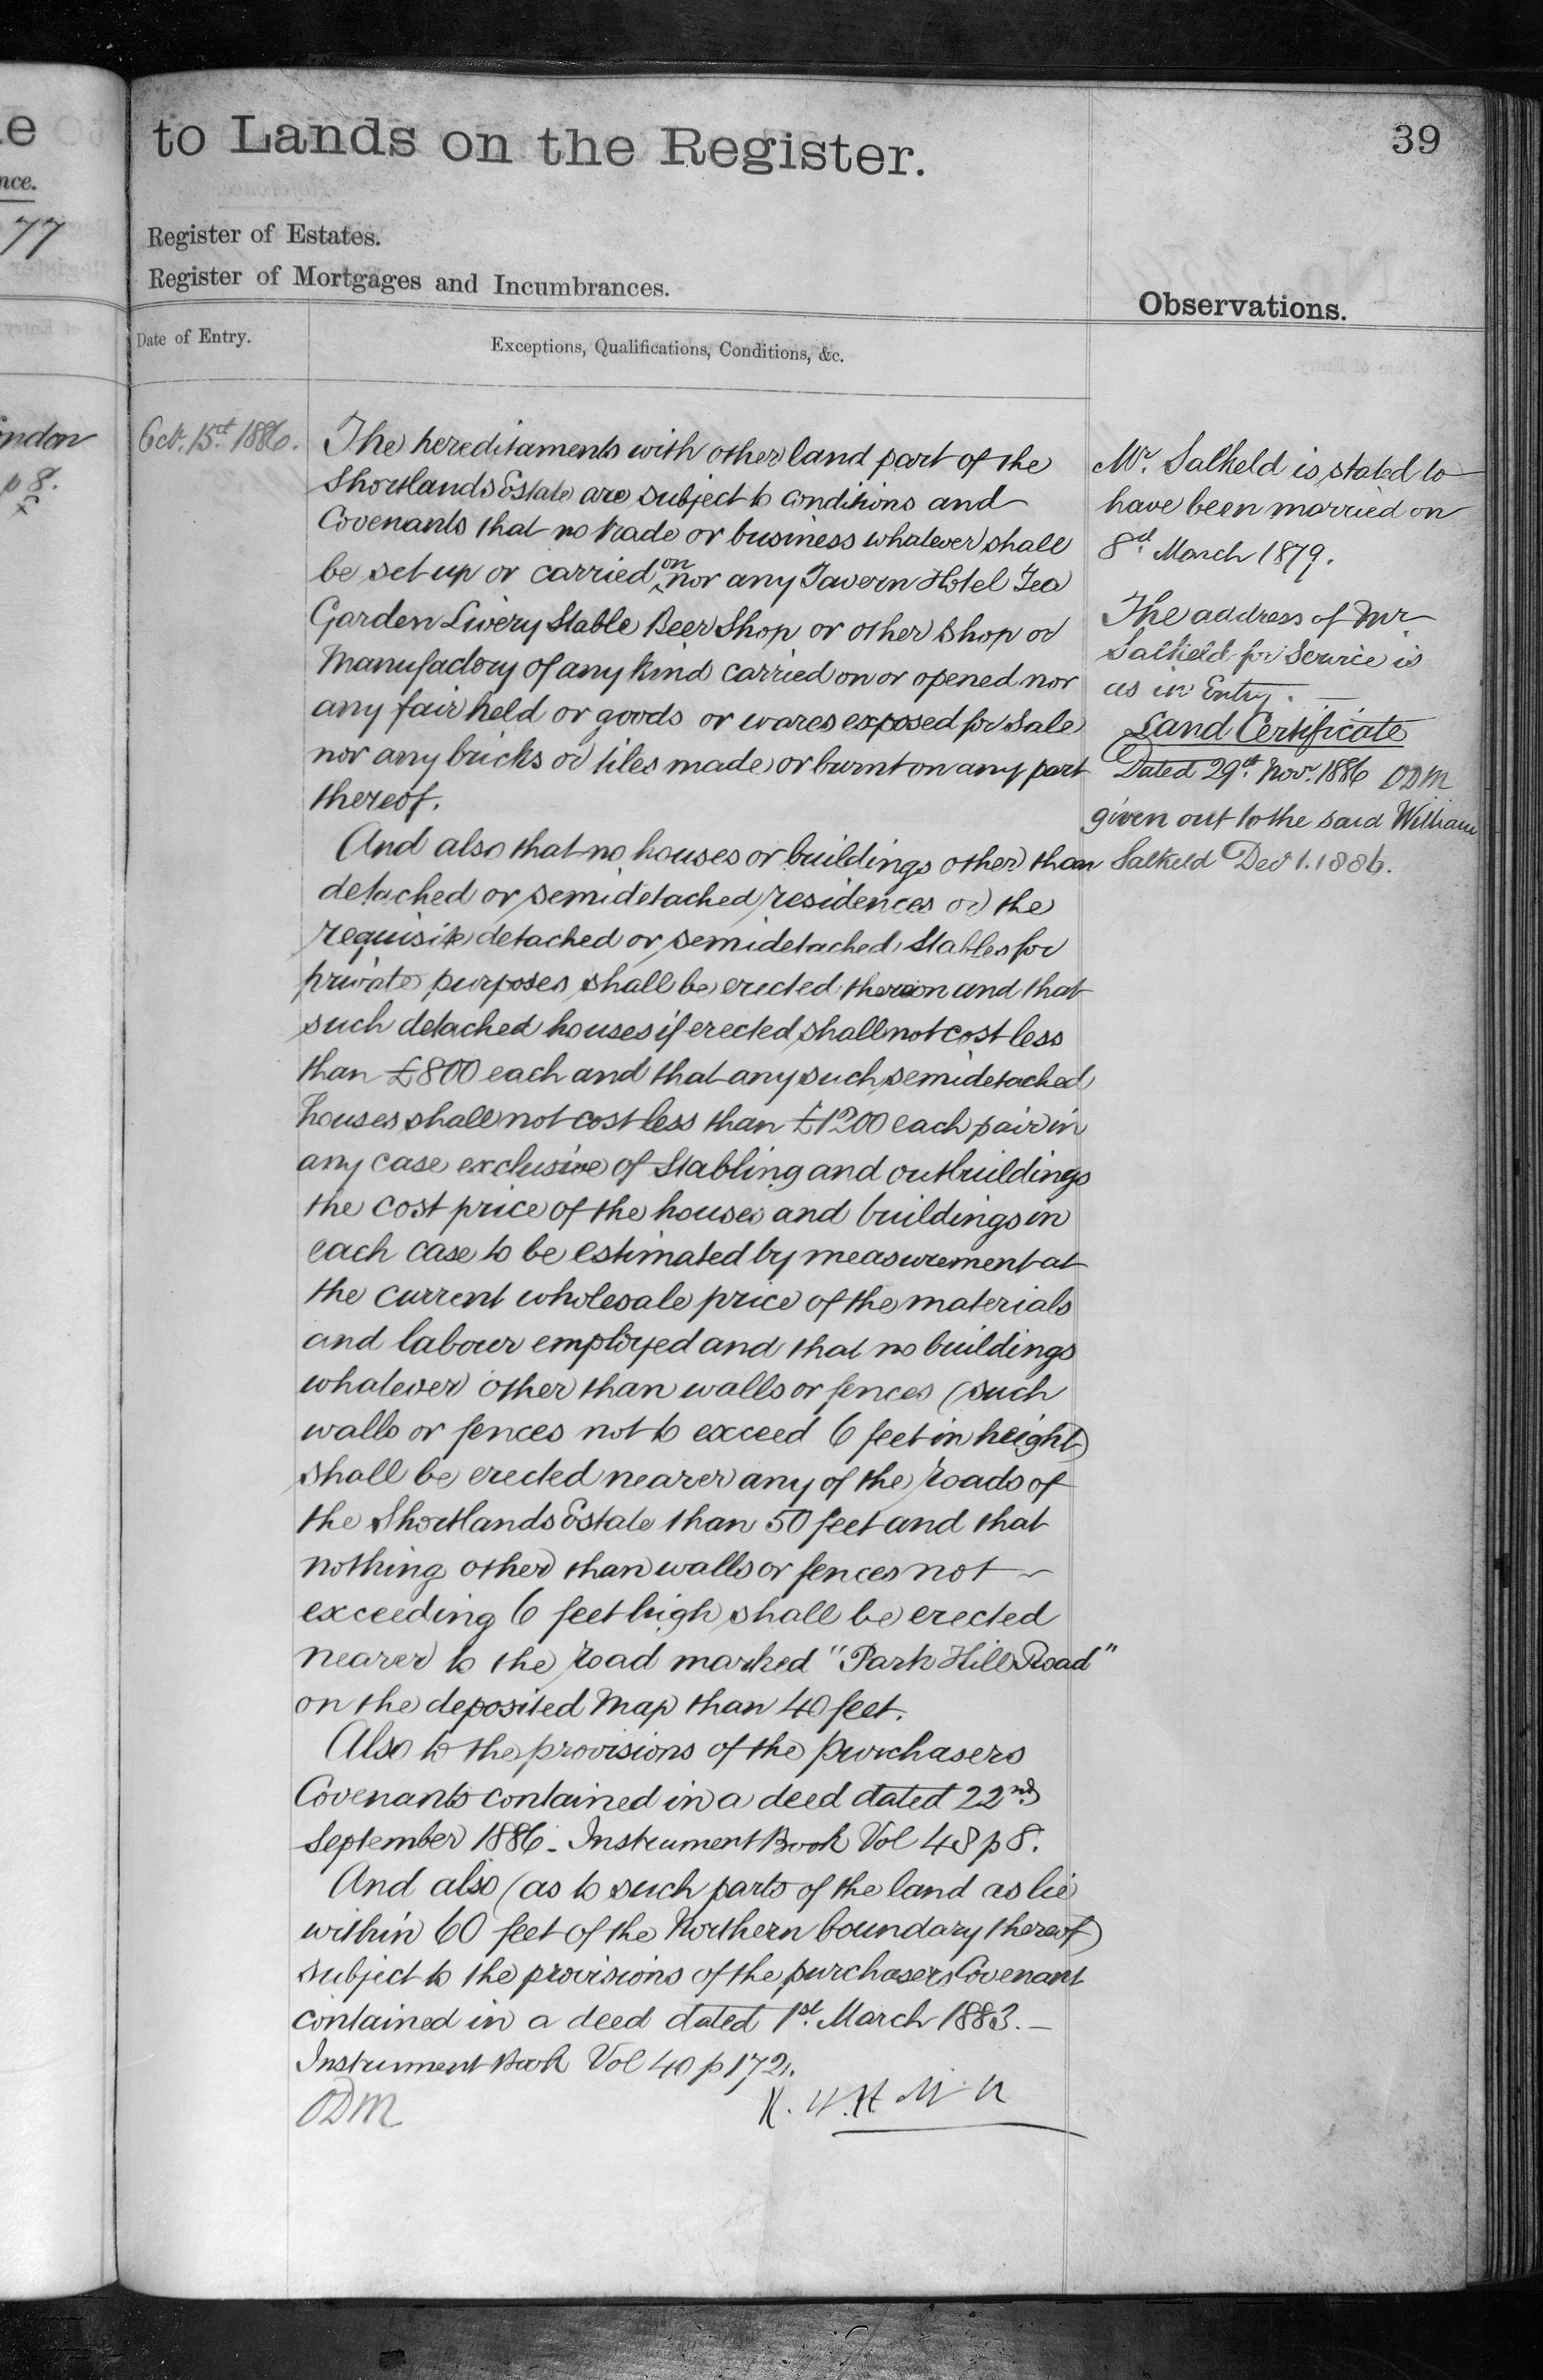 to Lands on the Register.
39
Register of Estates.
Register of Mortgages and Incumbrances.
Observations.
Date of Entry.
Exceptions, Qualifications, Conditions, &c.
Oct. 15th 1886.
The hereditaments with other land part of the
Shortlands Estate are subject to conditions and
Covenants that no trade or business whatever shall
be set up or carried on nor any Tavern Hotel Tea
Garden Livery Stable Beer Shop or other shop or
Manufactory of any kind carried on or opened nor
any fair held or goods or wares exposed for Sale
nor any bricks or tiles made or burnt on any part
thereof.
And also that no houses or buildings other than
detached or semidetached residences or the
requisite detached or semidetached Stables for
private purposes shall be erected thereon and that
such detached houses if erected shall not cost less
than £800 each and that any such semidetached
houses shall not cost less than £1200 each pair in
any case exclusive of Stabling and outbuildings
the cost price of the houses and buildings in
each case to be estimated by measurement at
the current wholesale price of the materials
and labour employed and that no buildings
whatever other than walls or fences (such
walls or fences not to exceed 6 feet in height)
shall be erected nearer any of the roads of
the Shortlands Estate than 50 feet and that
nothing other than walls or fences not
exceeding 6 feet high shall be erected
nearer to the road marked "Park Hill Road"
on the deposited Map than 40 feet.
Also to the provisions of the purchasers
Covenants contained in a deed dated 22nd
September 1886 - Instrument Book Vol 48 p 8.
And also (as to such parts of the land as lie
within 60 feet of the Northern boundary thereof)
subject to the provisions of the purchasers Covenant
contained in a deed dated 1st March 1883. -
Instrument Book Vol 40 p 172.
ODM
Mr. Salkeld is stated to
have been married on
8th March 1879.
The address of Mr
Salkeld for Service is
as in Entry. -
Land Certificate
Dated 29th Novr. 1886 ODM
given out to the said William
Salkeld Decr 1. 1886.
77
ndon
p 8.